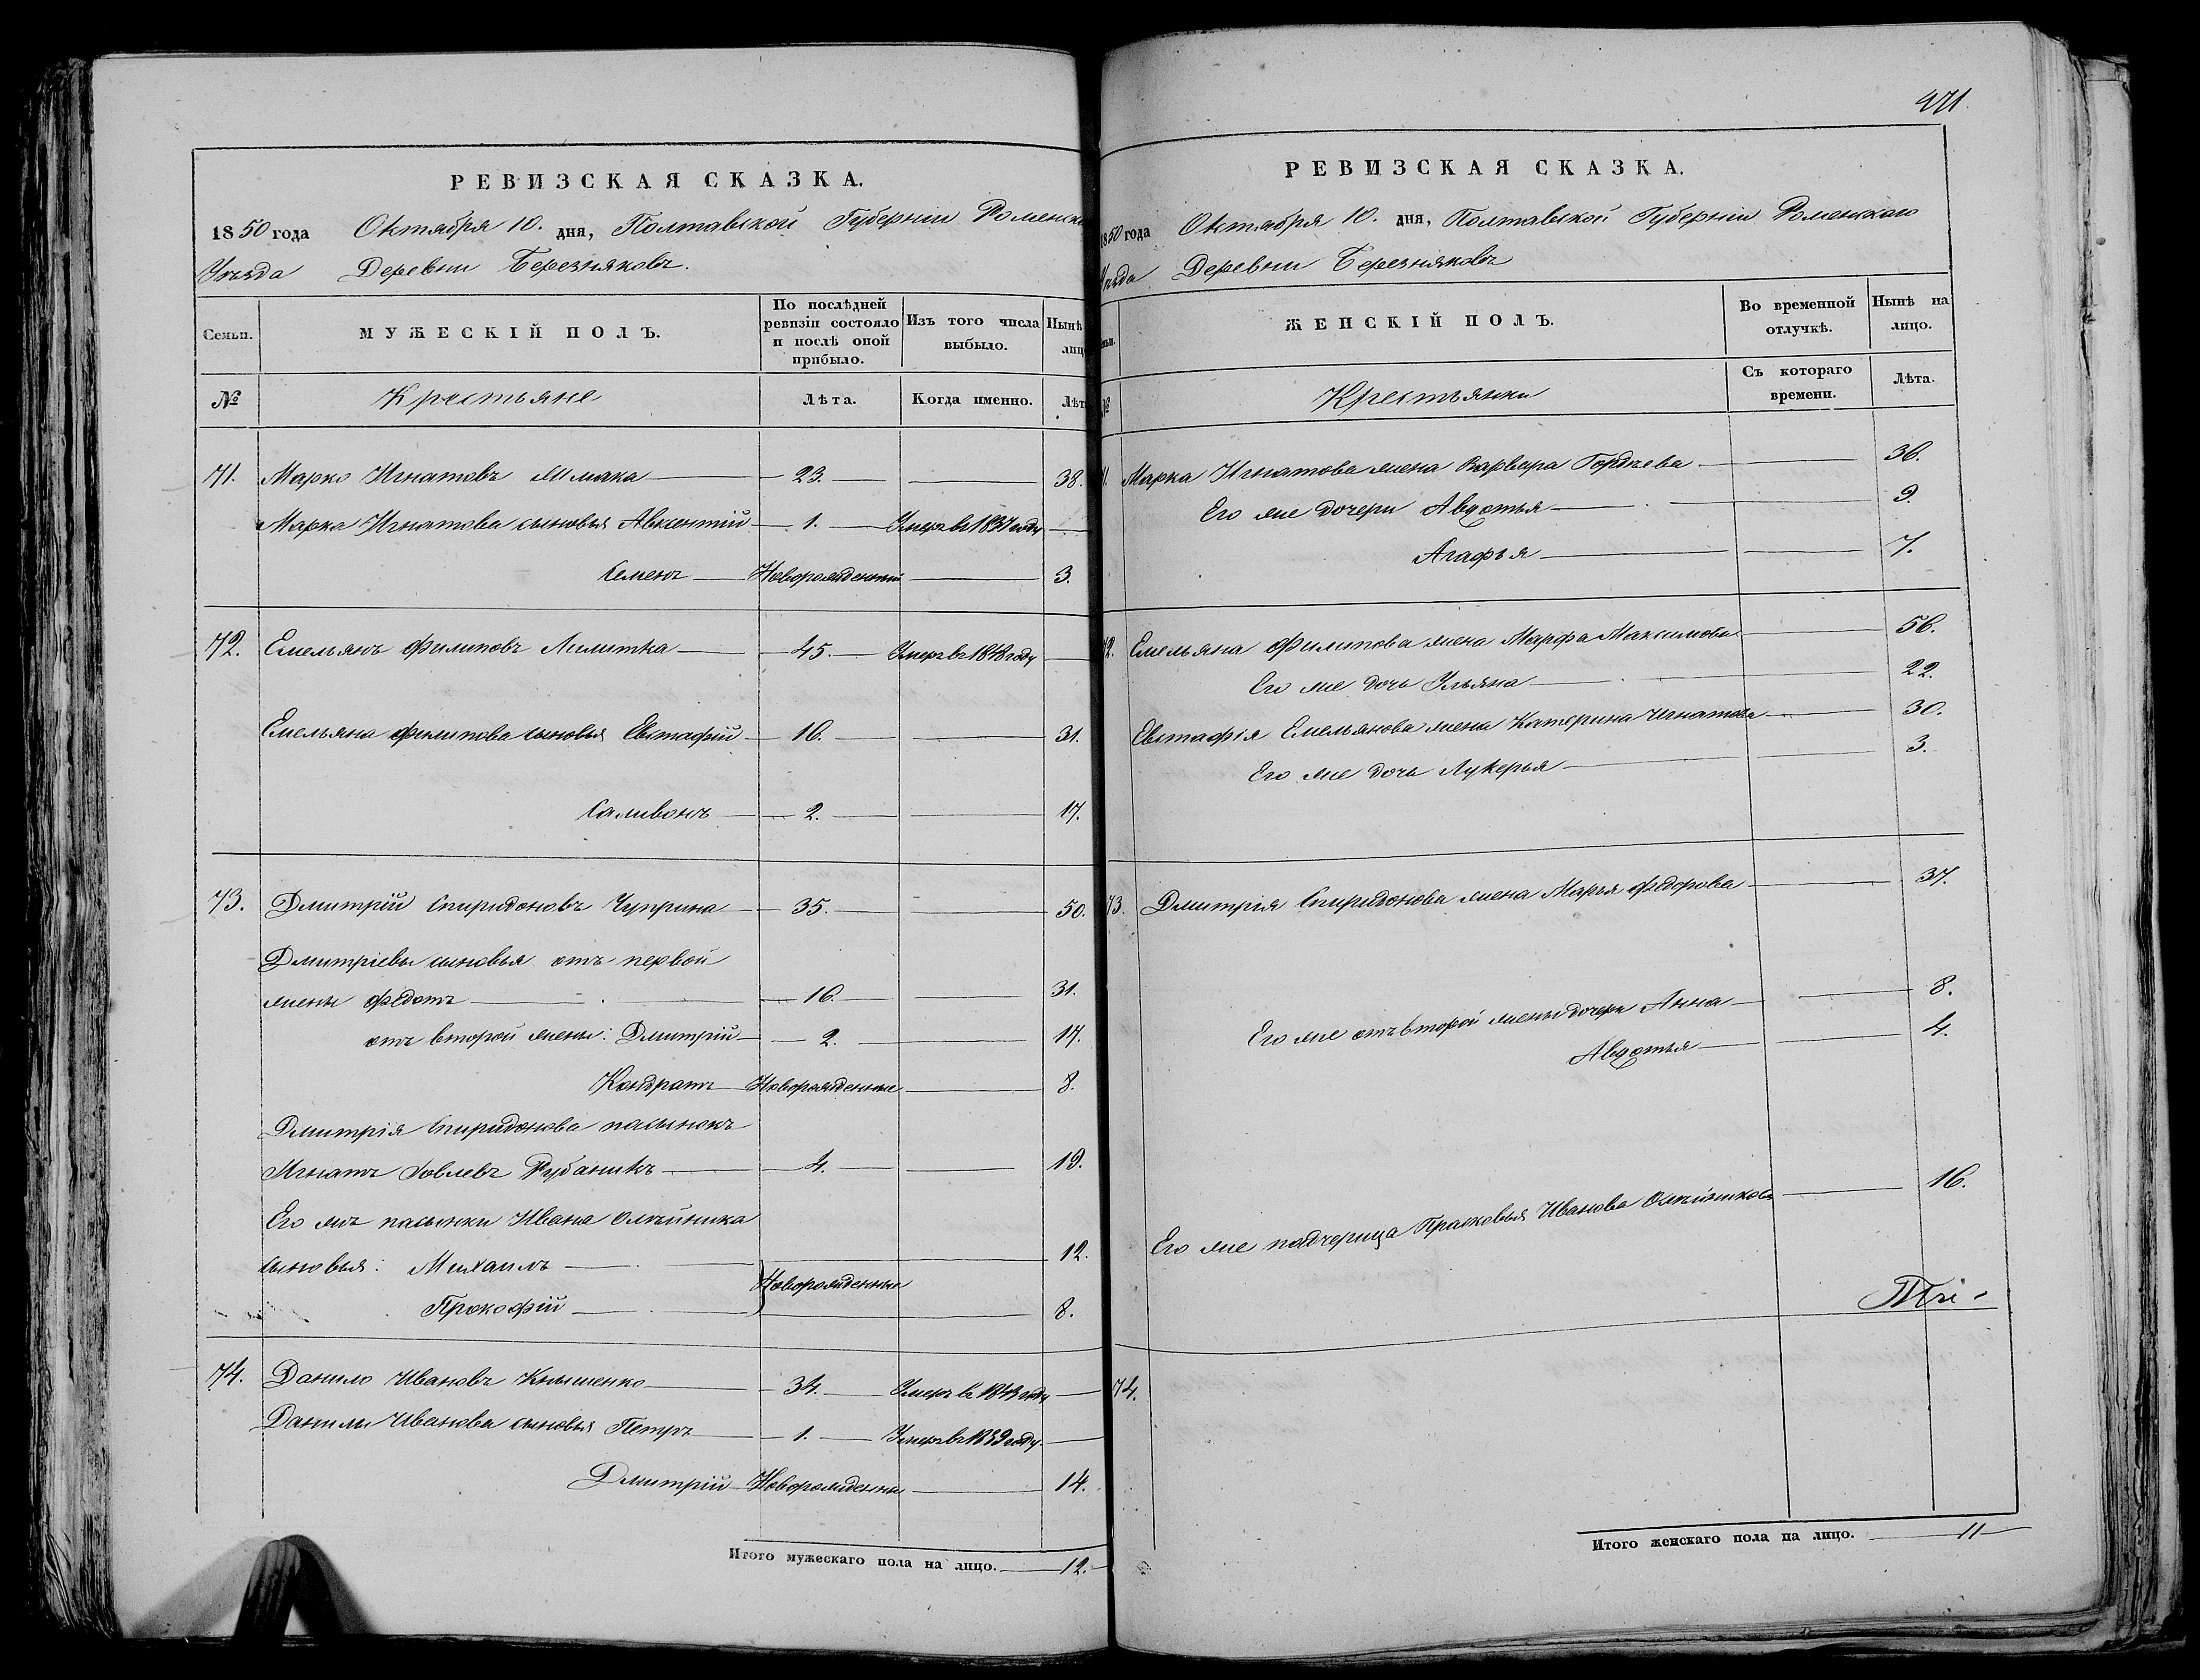 РЕВИЗСКАЯ СКАЗКА.
1850 года Октября 10. дня, Полтавской Губерніи Роменска
Уѣзда Деревни Березняковъ.
Семьи. МУЖЕСКІЙ ПОЛЪ. По послѣдней ревизіи состояло и послѣ оной прибыло. Изъ того числа выбыло. Нынѣ лиц
№ Крестьяне Лѣта. Когда именно. Лѣт
71. Марко Игнатовъ 23. 38.
Марка Игнатова сыновья Авксентій 1. Умеръ въ 1837 году
Семенъ Новорожденный 3.
72. Емельянъ Филиповъ 45. Умеръ въ 1848 году
Емельяна Филипова сыновья Евстафій 16. 31.
Саливонъ 2. 17.
73. Дмитрій Спиридоновъ Чуприна 35. 50.
Дмитріевы сыновья отъ первой
жены Федотъ 16. 31.
отъ второй жены: Дмитрій 2. 17.
Кондратъ Новорожденные 8.
Дмитрія Спиридонова пасынокъ
Игнатъ Іовлевъ Рубаникъ 4. 19.
Его жъ пасынки Ивана Олѣйника
сыновья: Михаилъ 12.
Новорожденные
Прокофій 8.
74. Данило Ивановъ Кнышенко 34. Умеръ въ 1843 году
Данилы Иванова сыновья Петръ 1. Умеръ въ 1839 году.
Дмитрій Новорожденны 14.
Итого мужескаго пола на лицо. 12.
471
РЕВИЗСКАЯ СКАЗКА.
1850 года Октября 10. дня, Полтавской Губерніи Роменскаго
Уѣзда Деревни Березняковъ
ЖЕНСКІЙ ПОЛЪ. Во временной отлучкѣ. Нынѣ на лицо.
№ Крестьянки Съ котораго времени. Лѣта.
71. Марка Игнатова жена Варвара Гордѣева 36.
Его же дочери Авдотья 9.
Агафья 7.
72. Емельяна Филипова жена Марфа Максимова 56.
Его же дочь Ульяна 22.
Евстафія Емельянова жена Катерина Игнатова 30.
Его же дочь Лукерья 3.
73. Дмитрія Спиридонова жена Марья Федорова 37.
Его же отъ второй жены дочери Анна 8.
Авдотья 4.
Его же падчерица Прасковья Иванова Олѣйникова 16.
74.
Итого женскаго пола на лицо. 11